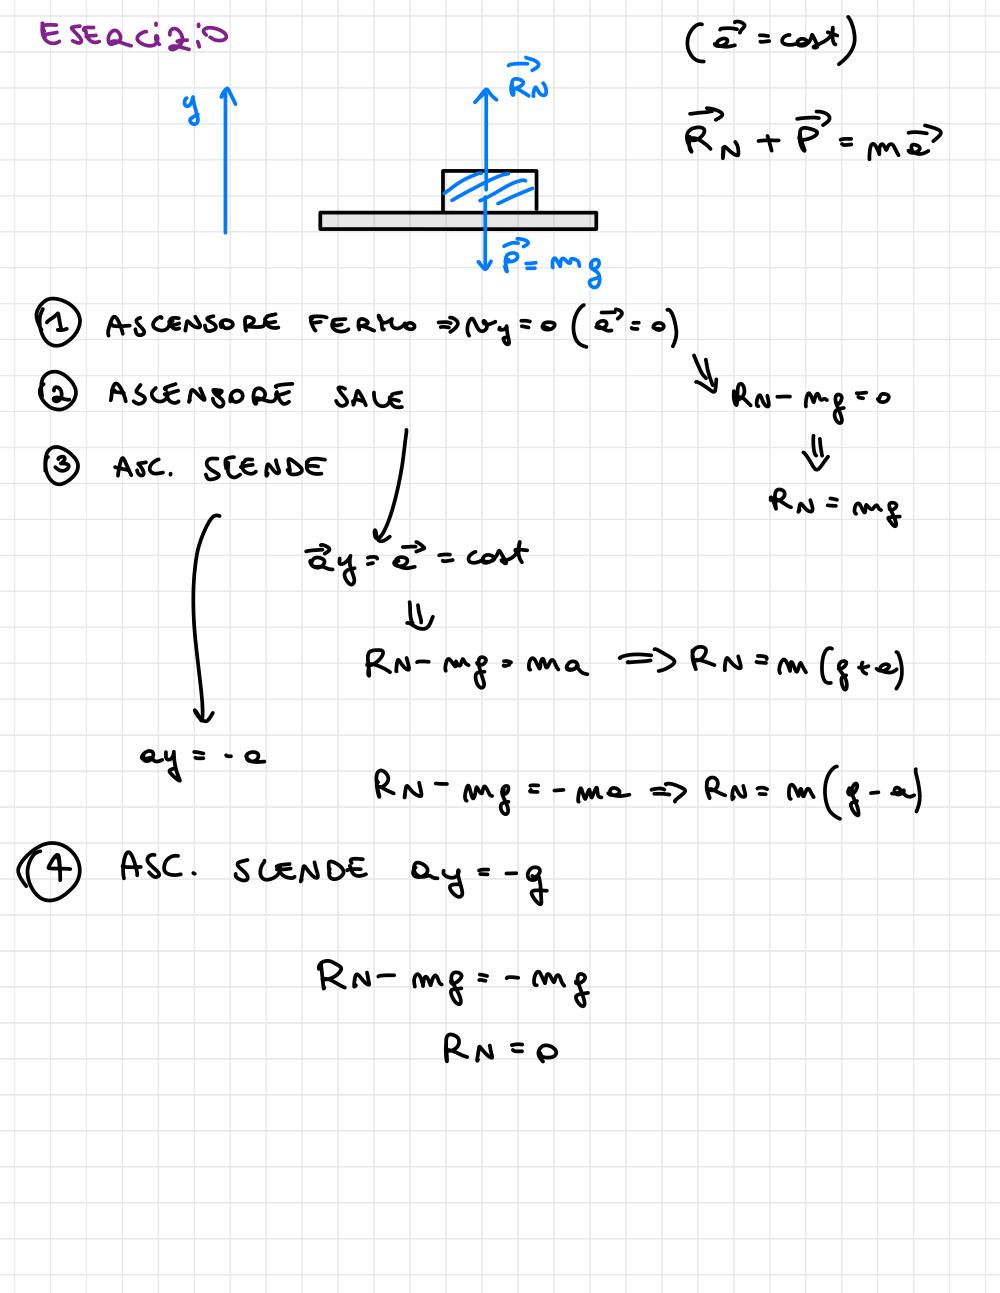 Esercizio
(a⃗ = cost)
y
R⃗N
R⃗N + P⃗ = ma⃗
P⃗ = mg
① ASCENSORE FERMO ⇒ vy = 0 (a⃗ = 0)
⇓
RN - mg = 0
⇓
RN = mg
② ASCENSORE SALE
③ ASC. SCENDE
a⃗y = a⃗ = cost
⇓
RN - mg = ma ⇒ RN = m(g+a)
ay = -a
RN - mg = -ma ⇒ RN = m(g-a)
④ ASC. SCENDE ay = -g
RN - mg = -mg
RN = 0